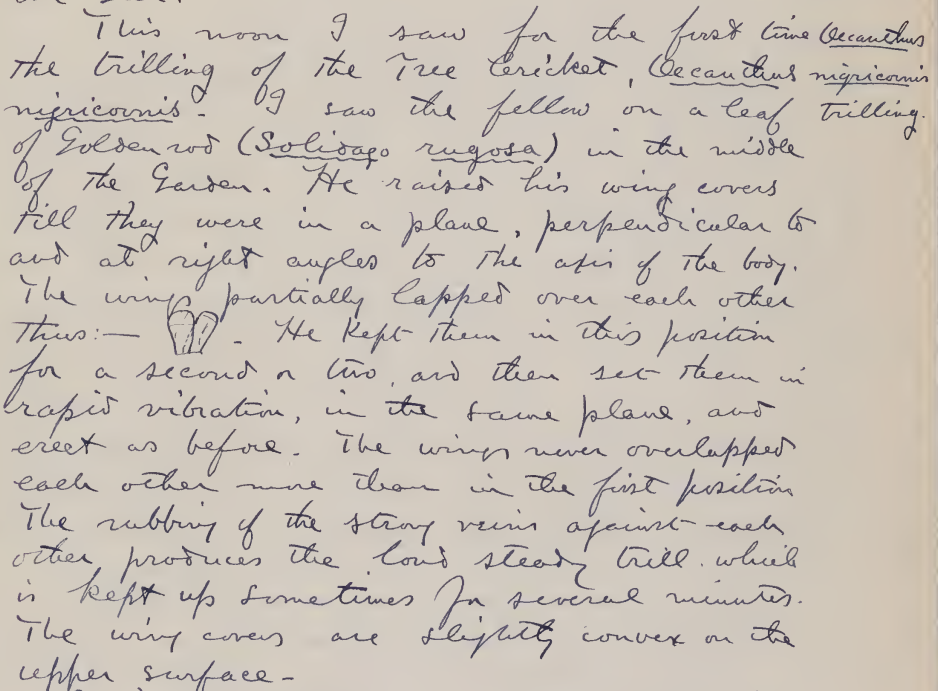 This noon I saw for the first time
the trilling of the Tree Cricket, Oecanthus
nigricornis. I saw the fellow on a leaf
of Golden rod (Solidago rugosa) in the middle
of the Garden. He raised his wing covers
till they were in a plane, perpendicular to
and at right angles to the axis of the body.
The wings partially lapped over each other
thus:— . He kept them in this position
for a second or two, and then set them in
rapid vibration, in the same plane, and
erect as before. The wings never overlapped
each other more than in the first position
The rubbing of the strong veins against each
other produces the loud steady trill which
is kept up sometimes for several minutes.
The wing covers are slightly convex on the
upper surface-
Oecanthus
nigricornis
trilling.